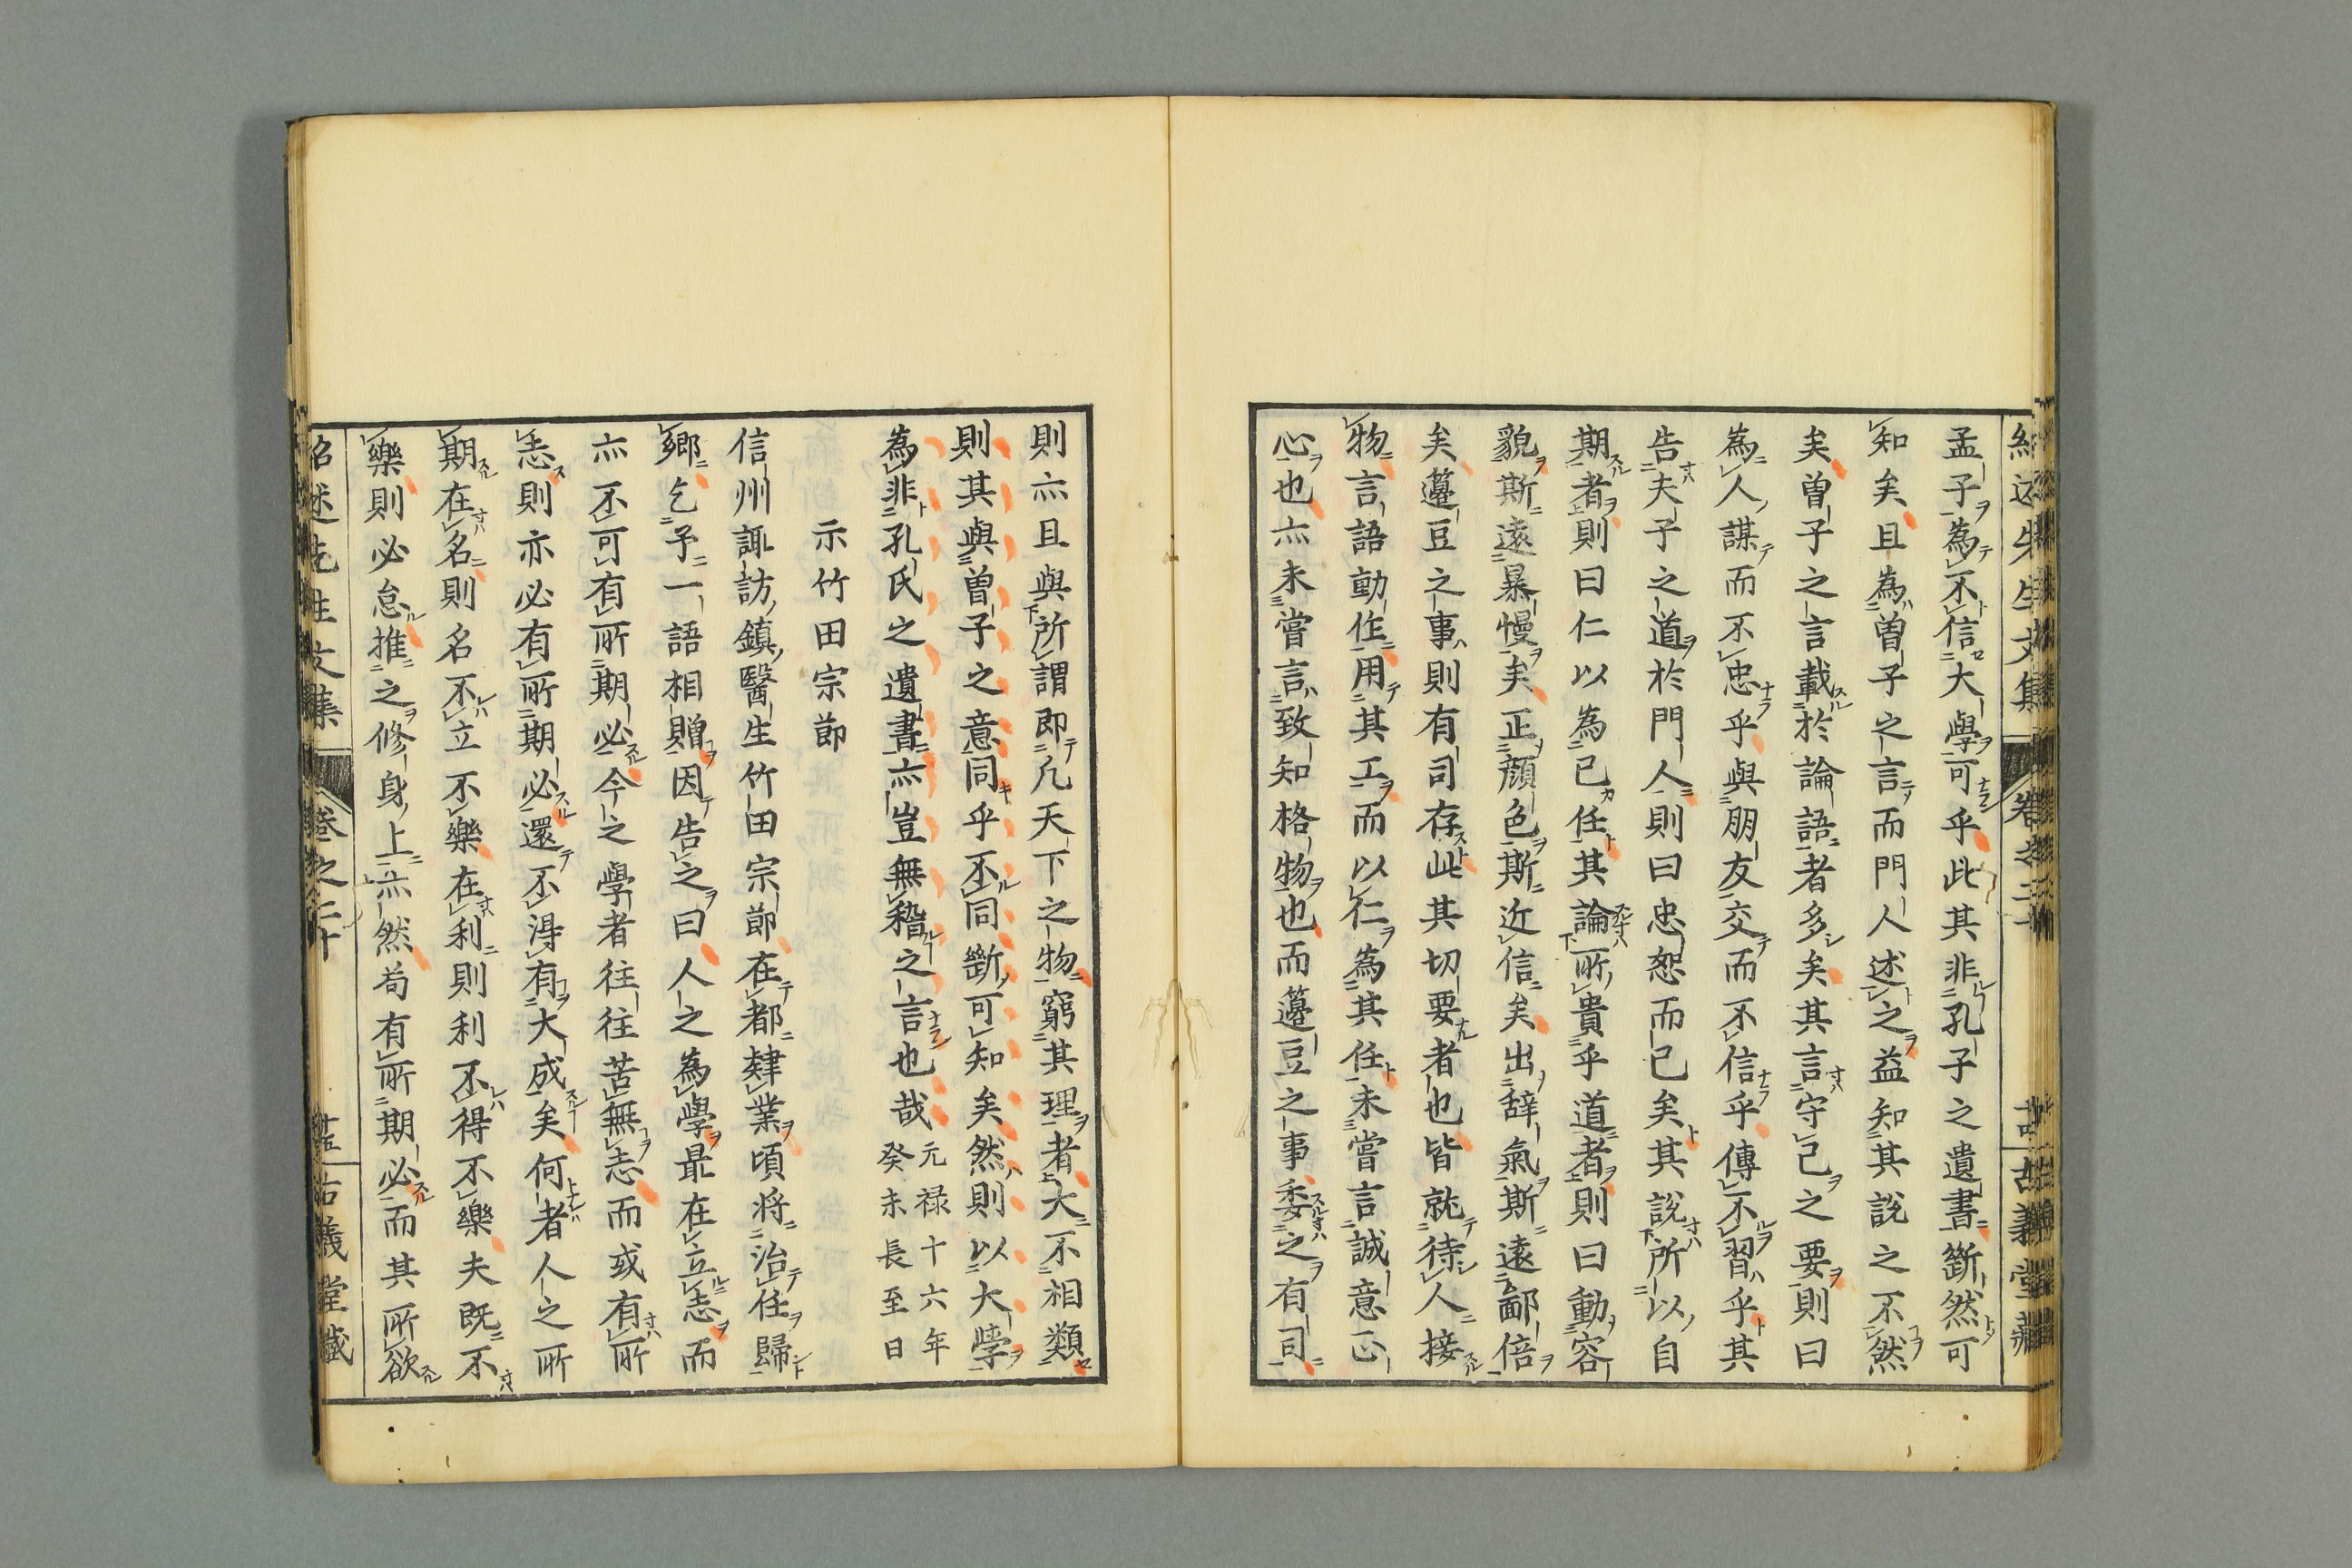 孟子為不信大學可乎此其非孔子之遺書斷然可
知矣且為曽子之言而門人述之益知其說之不然
矣曽子之言載於論語者多矣其言守己之要則曰
為人謀而不忠乎與朋友交而不信乎傳不習乎其
告夫子之道於門人則曰忠恕而已矣其說所以自
期者則曰仁以為己任其論所貴乎道者則曰動容
貌斯遠暴慢矣正顔色斯近信矣出辭氣斯遠鄙倍
矣籩豆之事則有司存此其切要者也皆就待人接
物言語動作用其工而以仁為其任未嘗言誠意正
心也亦未嘗言致知格物也而籩豆之事委之有司
則亦且與所謂即凡天下之物窮其理者大不相類
則其與曽子之意同乎不同斷可知矣然則以大學
為非孔氏之遺書亦豈無稽之言也哉
元禄十六年
癸未長至日
示竹田宗節
信州諏訪鎮醫生竹田宗節在都肄業頃将治任歸
鄉乞予一語相贈因告之曰人之為學最在立志而
亦不可有所期必今之學者往往苦無志而或有所
志則亦必有所期必還不得有大成矣何者人之所
期在名則名不立不樂在利則利不得不樂夫既不
樂則必怠推之修身上亦然苟有所期必而其所欲
紹述先生文集
卷之二十
古義堂藏